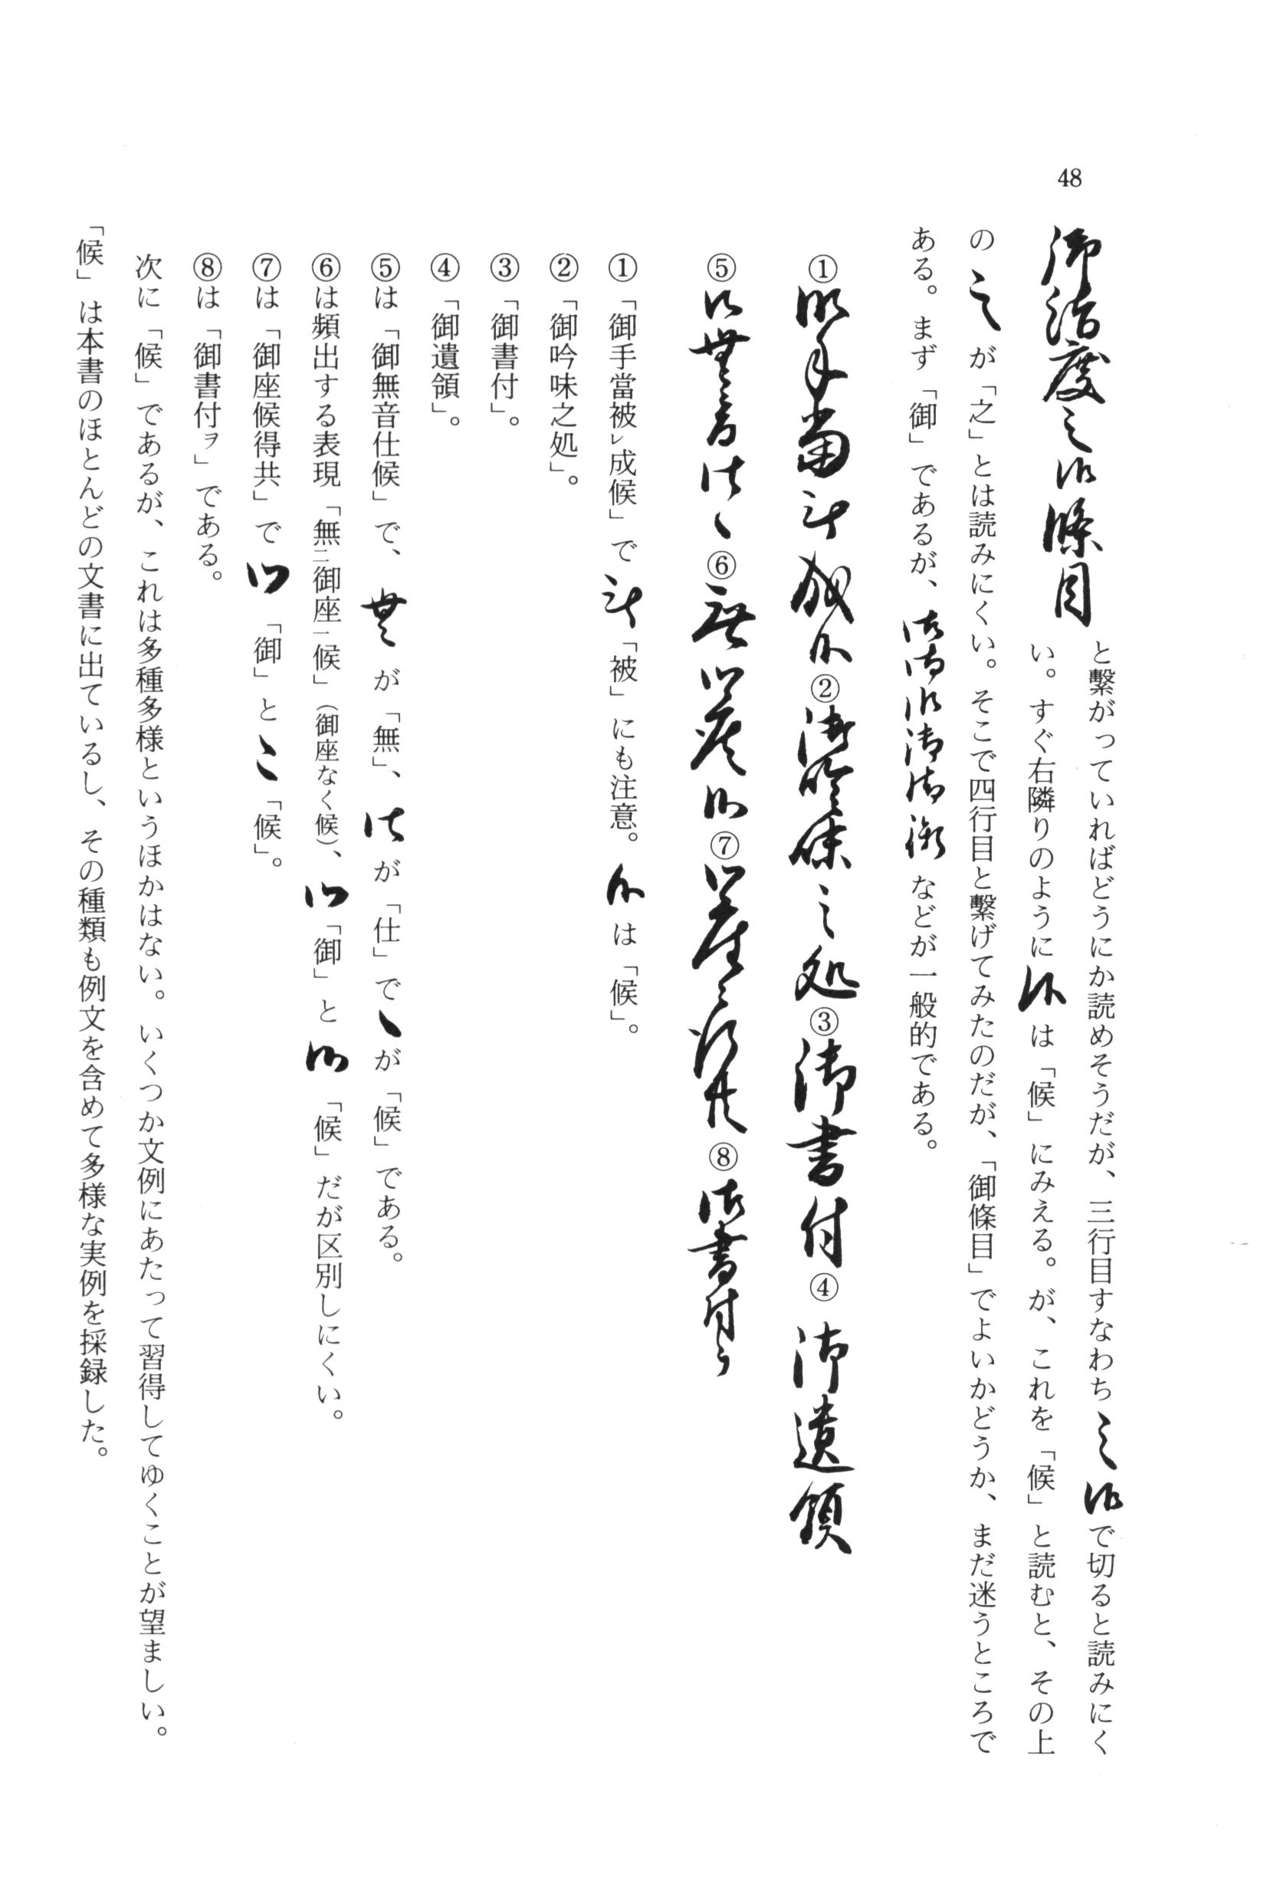 48
御法度之御條目
と繫がっていればどうにか読めそうだが、三行目すなわち之御で切ると読みにく
い。すぐ右隣りのようには「候」にみえる。が、これを「候」と読むと、その上
の之が「之」とは読みにくい。そこで四行目と繫げてみたのだが、「御條目」でよいかどうか、まだ迷うところで
ある。まず「御」であるが、御御御御御御などが一般的である。
①御手當被成候②御吟味之処③御書付④御遺領
⑤御無音仕候⑥無御座候⑦御座候得共⑧御書付ヲ
①「御手當被レ成候」で被「被」にも注意。候は「候」。
②「御吟味之処」。
③「御書付」。
④「御遺領」。
⑤は「御無音仕候」で、無が「無」、仕が「仕」で候が「候」である。
⑥は頻出する表現「無二御座一候」（御座なく候）、御「御」と候「候」だが区別しにくい。
⑦は「御座候得共」で御「御」と候「候」。
⑧は「御書付ヲ」である。
次に「候」であるが、これは多種多様というほかはない。いくつか文例にあたって習得してゆくことが望ましい。
「候」は本書のほとんどの文書に出ているし、その種類も例文を含めて多様な実例を採録した。